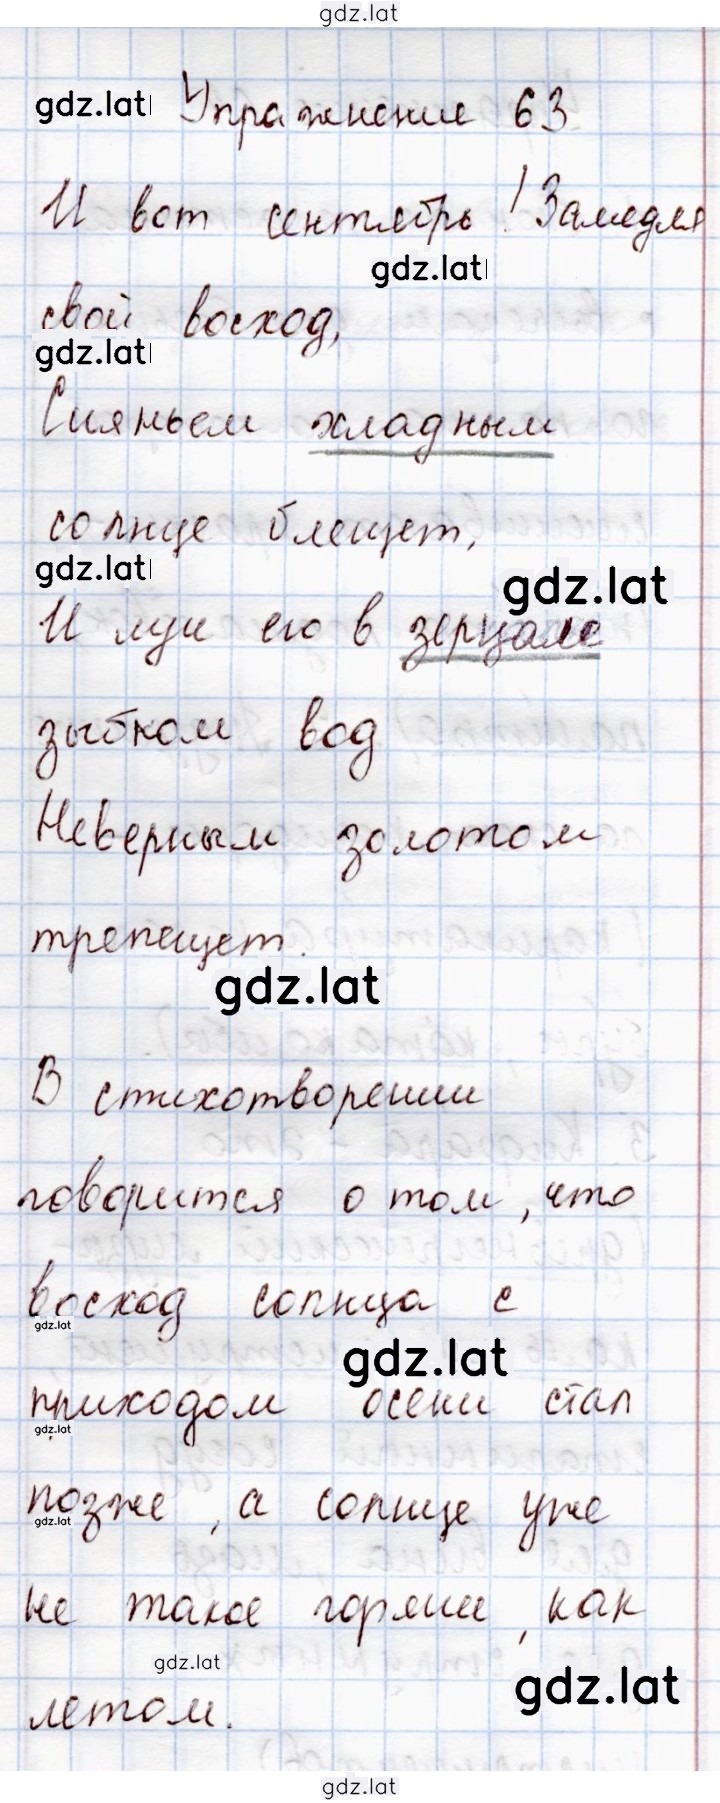 gdz.lat
gdz.lat Упражнение 63
И вот сентябрь! Замедля
gdz.lat
свой восход,
gdz.lat
Сияньем хладным
солнце блещет,
gdz.lat
gdz.lat
И луч его в зерцале
зыбком вод
Неверным золотом
трепещет.
gdz.lat
В стихотворении
говорится о том, что
восход солнца с
gdz.lat
gdz.lat
приходом осени стал
gdz.lat
позже, а солнце уже
gdz.lat
не такое горячее, как
gdz.lat
gdz.lat
летом.
gdz.lat